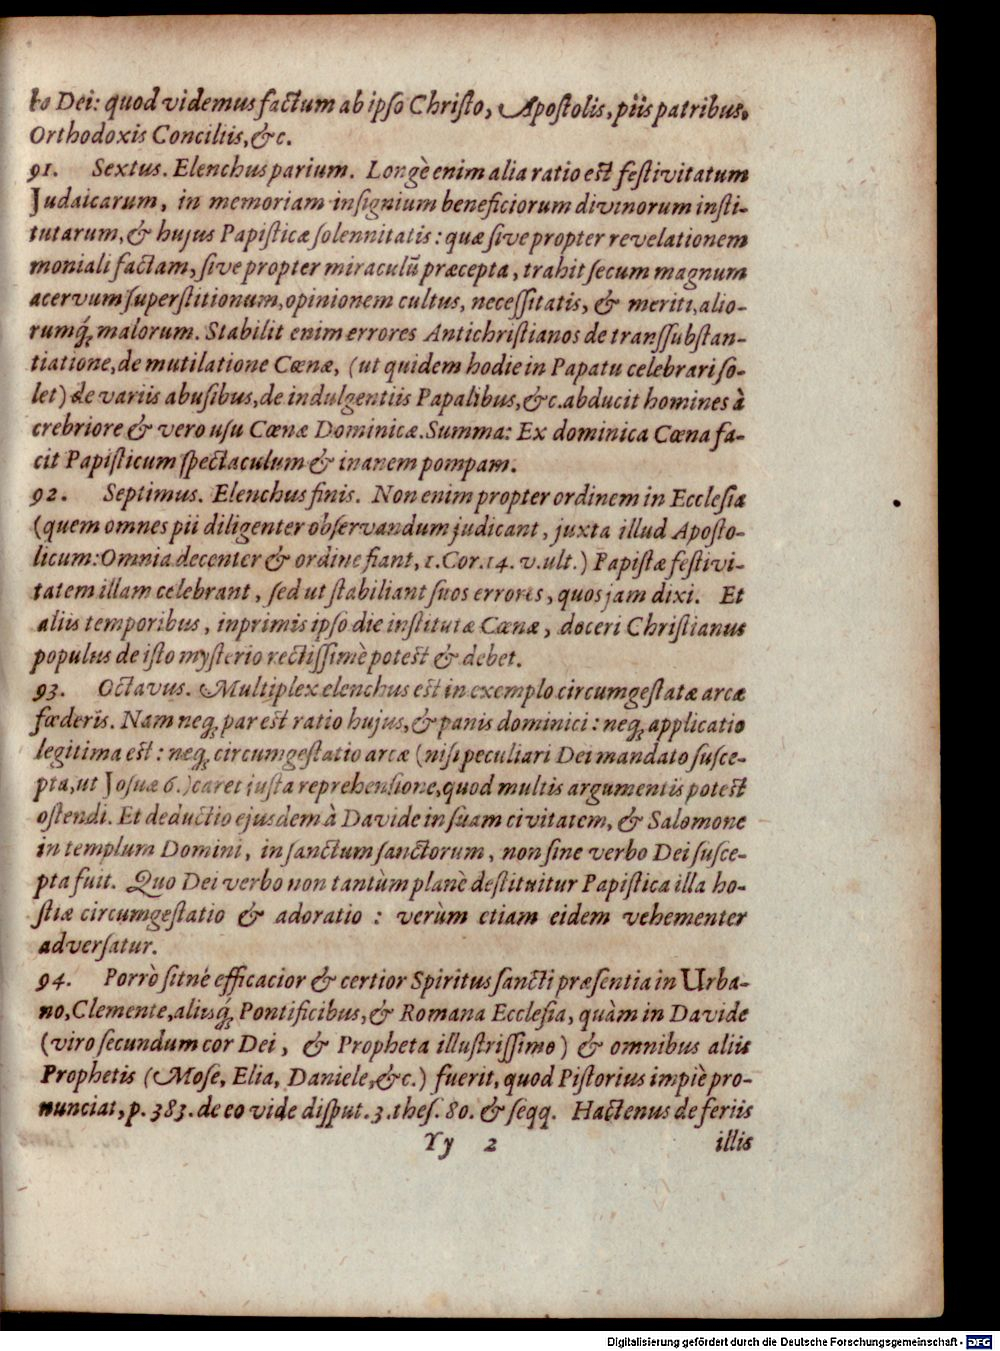 bo Dei: quod videmus factum ab ipſo Chriſto, Apoſtolis, piis patribus,
Orthodoxis Conciliis, &c.
91. Sextus. Elenchus parium. Longè enim alia ratio eſt feſtivitatum
Judaicarum, in memoriam inſignium beneficiorum divinorum inſti-
tutarum, & hujus Papiſticæ ſolennitatis: quæ ſive propter revelationem
moniali factam, ſive propter miraculũ præcepta, trahit ſecum magnum
acervum ſuperſtitionum, opinionem cultus, neceſſitatis, & meriti, alio-
rumq́; malorum. Stabilit enim errores Antichriſtianos de transſubſtan-
tiatione, de mutilatione Cœnæ, (ut quidem hodie in Papatu celebrari ſo-
let) de variis abuſibus, de indulgentiis Papalibus, &c. abducit homines à
crebriore & vero uſu Cœnæ Dominicæ. Summa: Ex dominica Cœna fa-
cit Papiſticum ſpectaculum & inanem pompam.
92. Septimus. Elenchus finis. Non enim propter ordinem in Eccleſia
(quem omnes pii diligenter obſervandum judicant, juxta illud Apoſto-
licum: Omnia decenter & ordine fiant, 1. Cor. 14. v. ult.) Papiſtæ feſtivi-
tatem illam celebrant, ſed ut ſtabiliant ſuos errores, quos jam dixi. Et
aliis temporibus, inprimis ipſo die inſtitutæ Cœnæ, doceri Chriſtianus
populus de iſto myſterio rectiſſimè poteſt & debet.
93. Octavus. Multiplex elenchus eſt in exemplo circumgeſtatæ arcæ
fœderis. Nam neq; par eſt ratio hujus, & panis dominici: neq; applicatio
legitima eſt: neq; circumgeſtatio arcæ (niſi peculiari Dei mandato ſuſce-
pta, ut Joſuæ 6.) caret juſta reprehenſione, quod multis argumentis poteſt
oſtendi. Et deductio ejusdem à Davide in ſuam civitatem, & Salomone
in templum Domini, in ſanctum ſanctorum, non ſine verbo Dei ſuſce-
pta fuit. Quo Dei verbo non tantùm planè deſtituitur Papiſtica illa ho-
ſtiæ circumgeſtatio & adoratio: verùm etiam eidem vehementer
adverſatur.
94. Porrò ſitné efficacior & certior Spiritus ſancti præſentia in Urba-
no, Clemente, aliisq́; Pontificibus, & Romana Eccleſia, quàm in Davide
(viro ſecundum cor Dei, & Propheta illuſtriſſimo) & omnibus aliis
Prophetis (Moſe, Elia, Daniele, &c.) fuerit, quod Piſtorius impiè pro-
nunciat, p. 383. de eo vide diſput. 3. theſ. 80. & ſeqq. Hactenus de feriis
Yy 2 illis
Digitalisierung gefördert durch die Deutsche Forschungsgemeinschaft - DFG